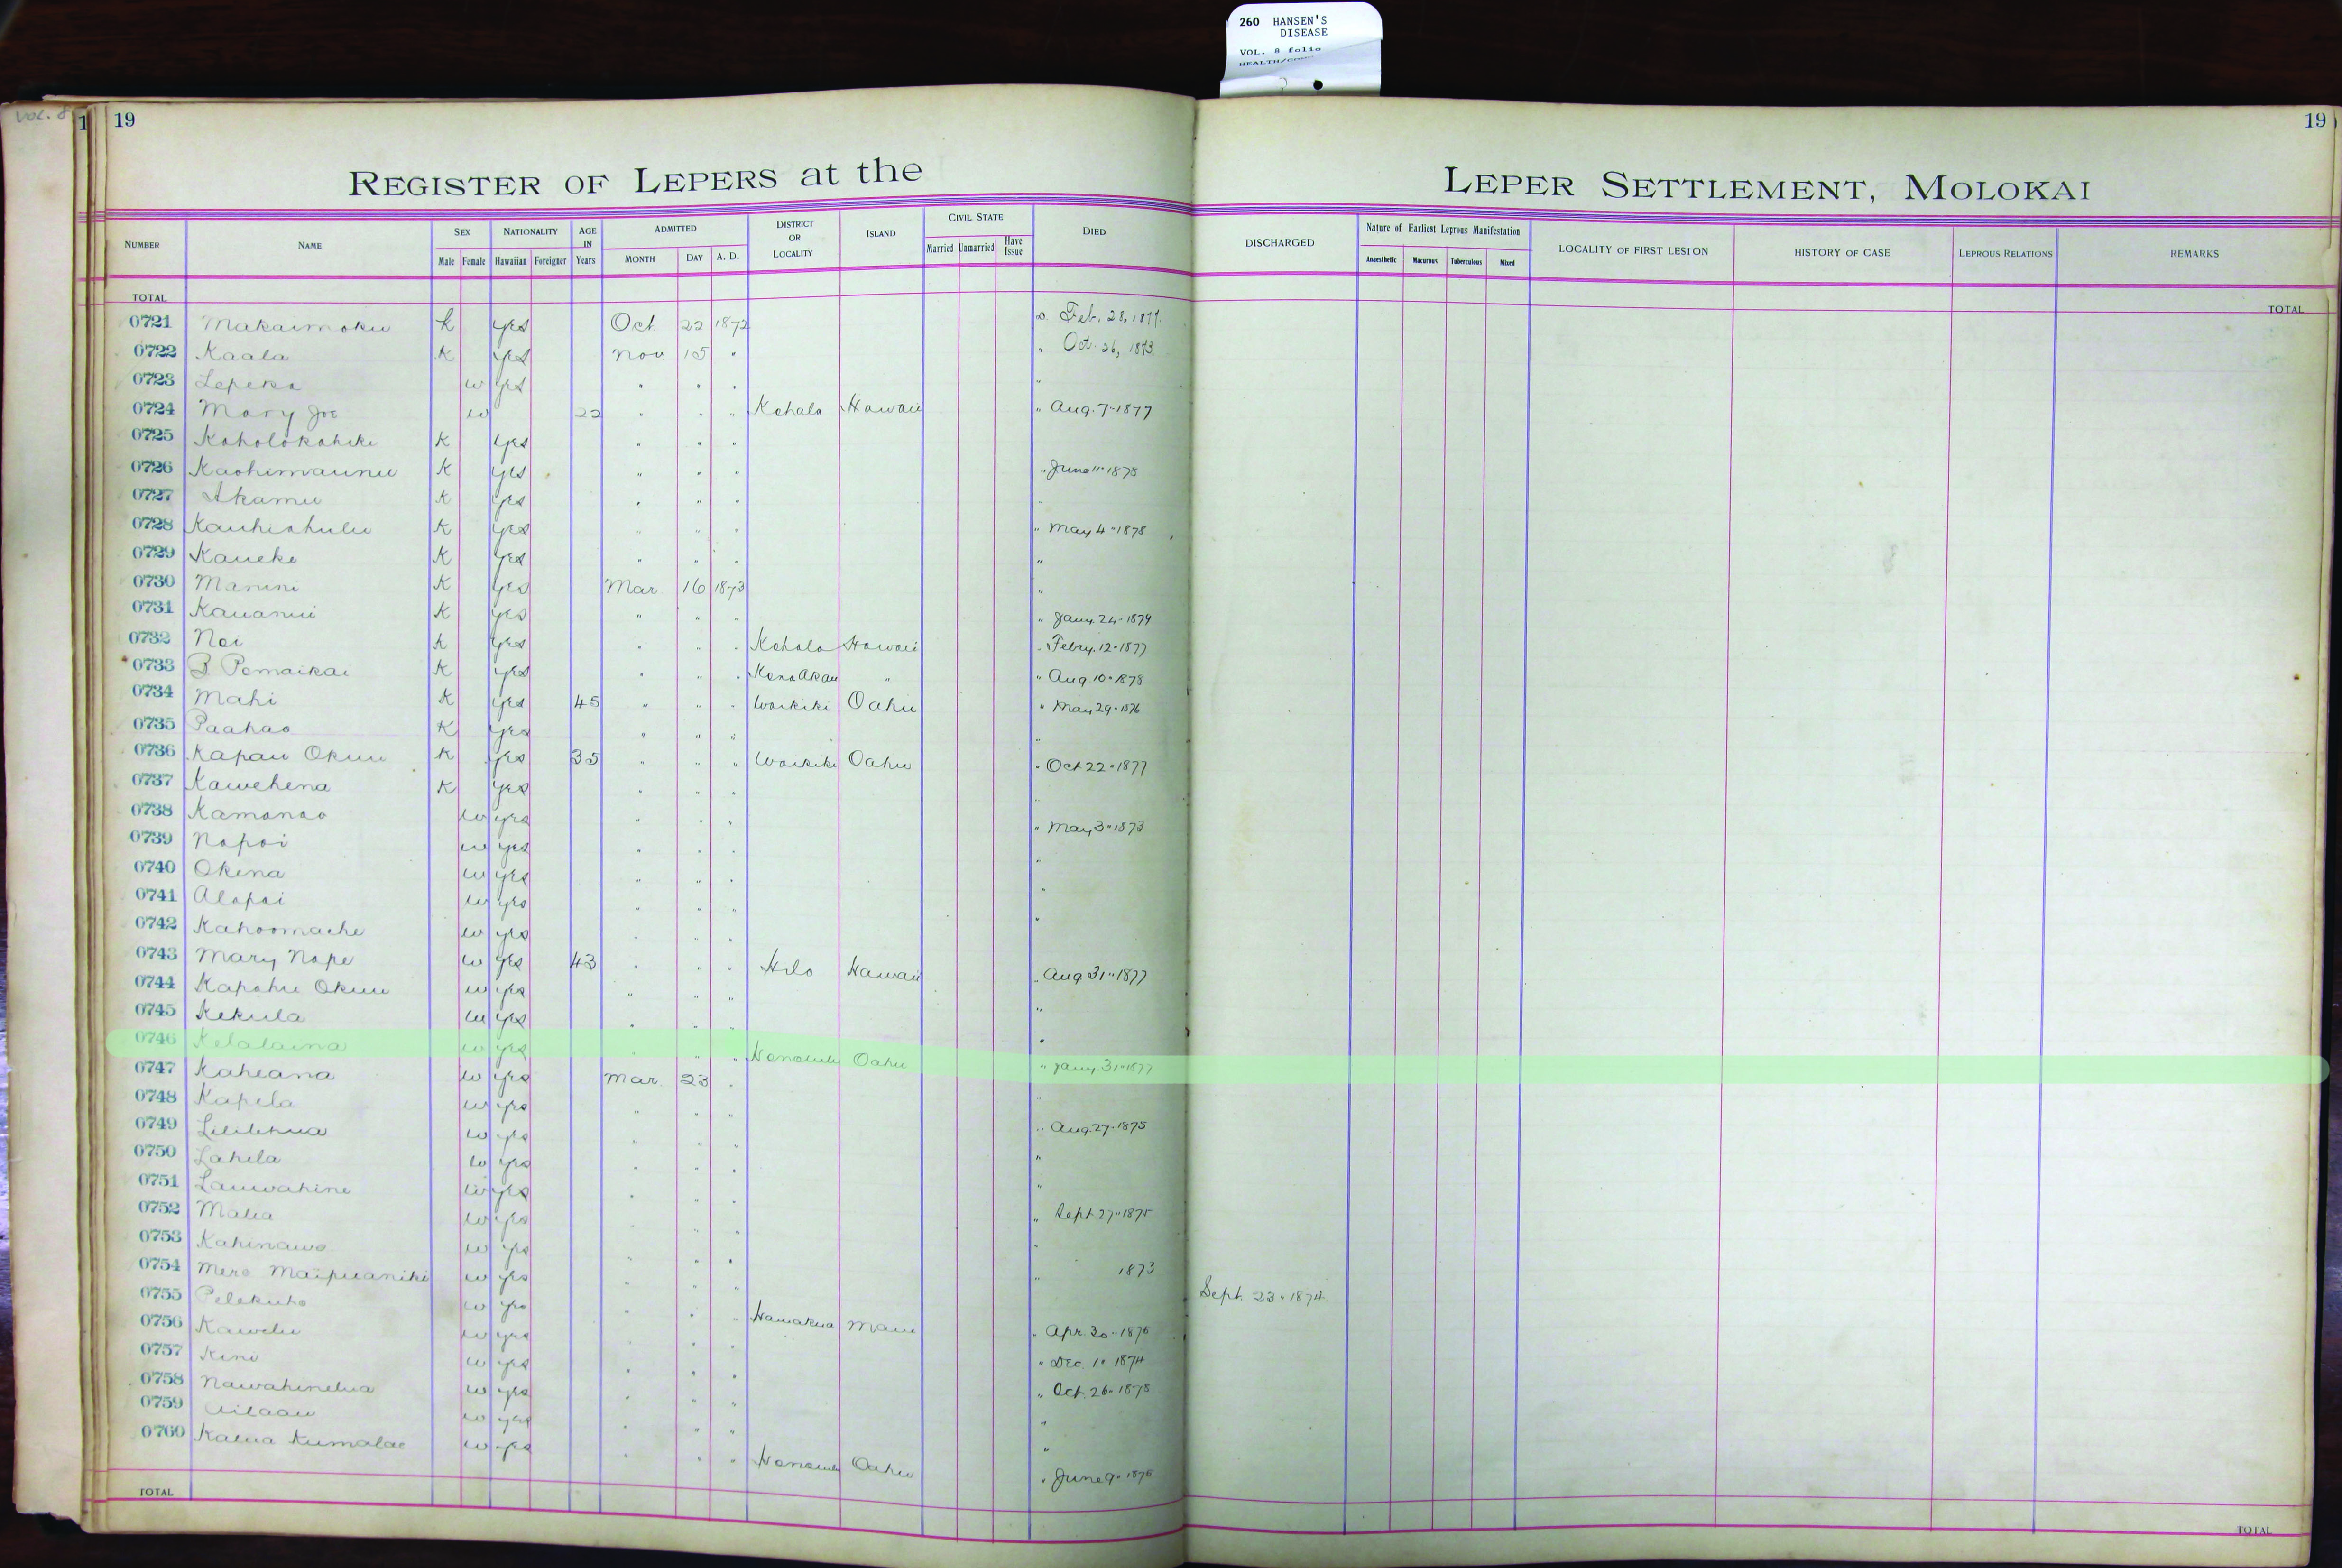 260 HANSEN'S
DISEASE
VOL. 8 folio
Vol. 8
1 19
19
REGISTER OF LEPERS at the LEPER SETTLEMENT, MOLOKAI
NUMBER NAME SEX Male Female NATIONALITY Hawaiian Foreigner AGE IN Years ADMITTED MONTH DAY A. D. DISTRICT OR LOCALITY ISLAND CIVIL STATE Married Unmarried Have Issue DIED DISCHARGED Nature of Earliest Leprous Manifestation Anaesthetic Macurous Tuberculous Mixed LOCALITY OF FIRST LESION HISTORY OF CASE LEPROUS RELATIONS REMARKS
TOTAL TOTAL
0721 Makaimoku K yes Oct. 22 1872 Feb. 28, 1877.
0722 Kaala K yes Nov 15 " " Oct. 26, 1873.
0723 Lepeka w yes " " " "
0724 Mary Joe w 22 " " " Kohala Hawaii " Aug. 7-1877
0725 Koholokahiki K yes " " "
0726 Kaohimaunu K yes " " " " June 11-1878
0727 Akamu K yes " " " "
0728 Kauhiahulu K yes " " " " May 4-1878
0729 Kaueke K yes " " " "
0730 Manini K yes Mar 16 1873 "
0731 Kauanui K yes " " " " Jany. 24-1874
0732 Noi K yes " " " Kohala Hawaii " Febry. 12-1877
0733 B Pomaikai K yes " " " Kona Akau " " Aug 10-1878
0734 Mahi K yes 45 " " " Waikiki Oahu " May 29-1876
0735 Paahao K yes " " " "
0736 Kapau Okuu K yes 35 " " " Waikiki Oahu " Oct 22-1877
0737 Kawehena K yes " " " "
0738 Kamanao w yes " " " " May 3-1873
0739 Napoi w yes " " " "
0740 Okina w yes " " " "
0741 Alapai w yes " " " "
0742 Kahoomache w yes " " "
0743 Mary Nape w yes 43 " " " Hilo Hawaii " Aug 31-1877
0744 Kapahu Okuu w yes " " " "
0745 Kekula w yes " " " "
0746 Kelalaina w yes " " " Honolulu Oahu " Jany. 31-1877
0747 Kaheana w yes Mar. 23 " "
0748 Kapela w yes " " " " Aug. 27-1875
0749 Lililehua w yes " " " "
0750 Lahela w yes " " " "
0751 Lauwahine w yes " " " " Sept. 27-1875
0752 Malia w yes " " " "
0753 Kahinawe w yes " " " " 1873
0754 Mere Maipuaniki w yes " " " Sept. 23-1874
0755 Pelekuho w yes " " " Hamakua Maui " Apr. 30-1876
0756 Kawelu w yes " " " Dec. 10 1874
0757 Kini w yes " " " " Oct. 26-1878
0758 Nawahinelua w yes " " " "
0759 Ailaau w yes " " " "
0760 Kalua Kumalae w yes " " " Honolulu Oahu " June 9-1876
TOTAL TOTAL